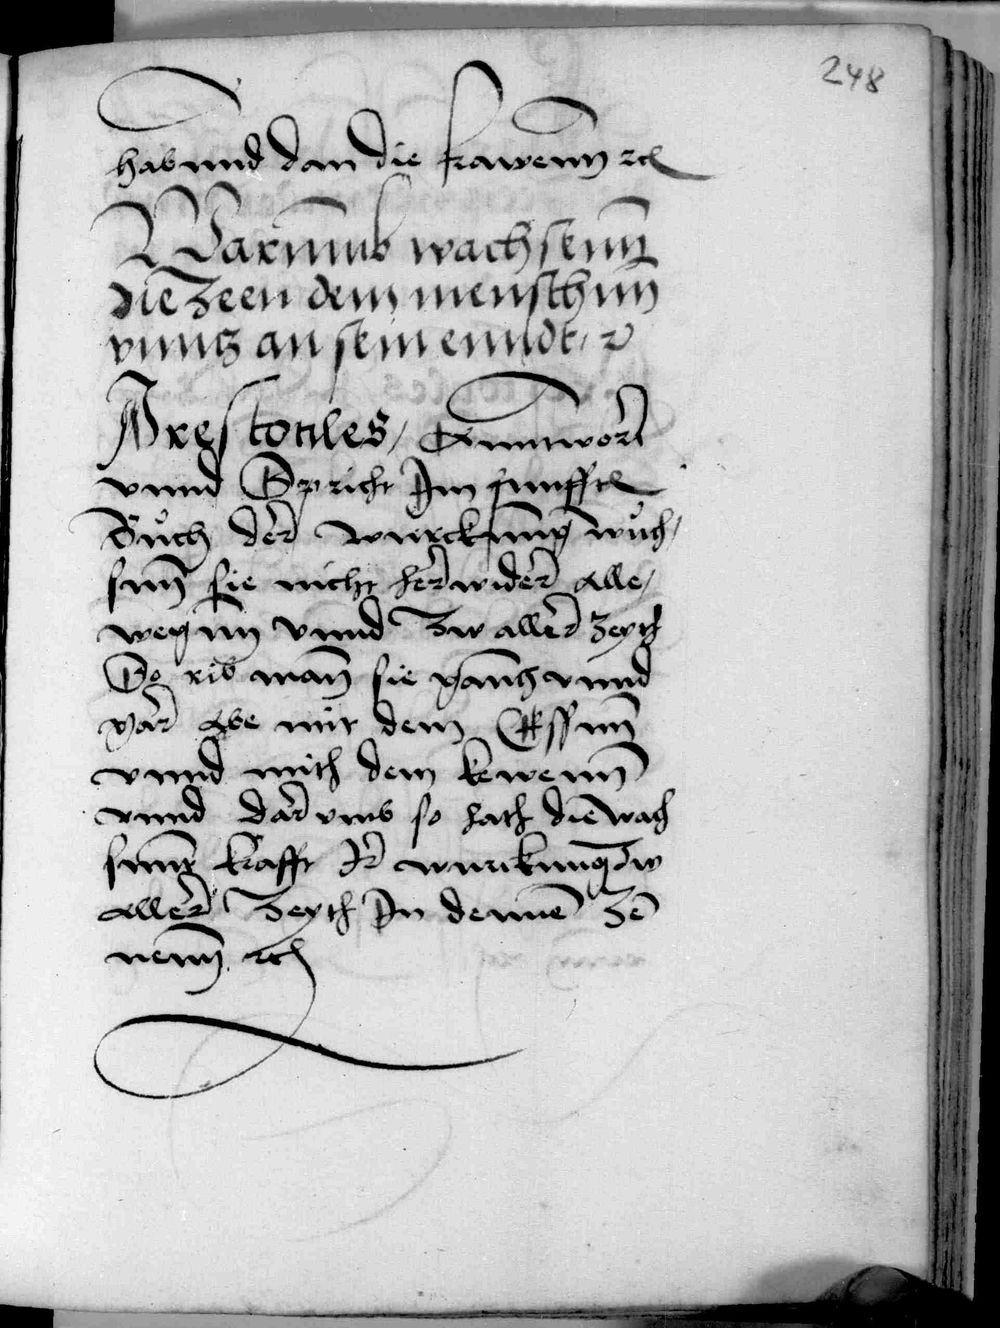 248
habennd dan die frawenn ꝛc
Warumb wachsenn
die Zeen dem menschnn
vnntz an sein enndt, ꝛ
Arestotiles, Anntwort
vnnd Spricht Im funfften
Buch der wurckung wuch,
snn sie nicht herwider Alle,
wegnn vnnd Zw aller Zeyth
So rib man sie ganntz vnnd
gar Abe mit dem Essnn
vnnd mith dem kewenn
vnnd darvmb so hath die wach
snng krafft Ir wurckung Zw
Aller Zeyth In dennen Ze
nenn ꝛc